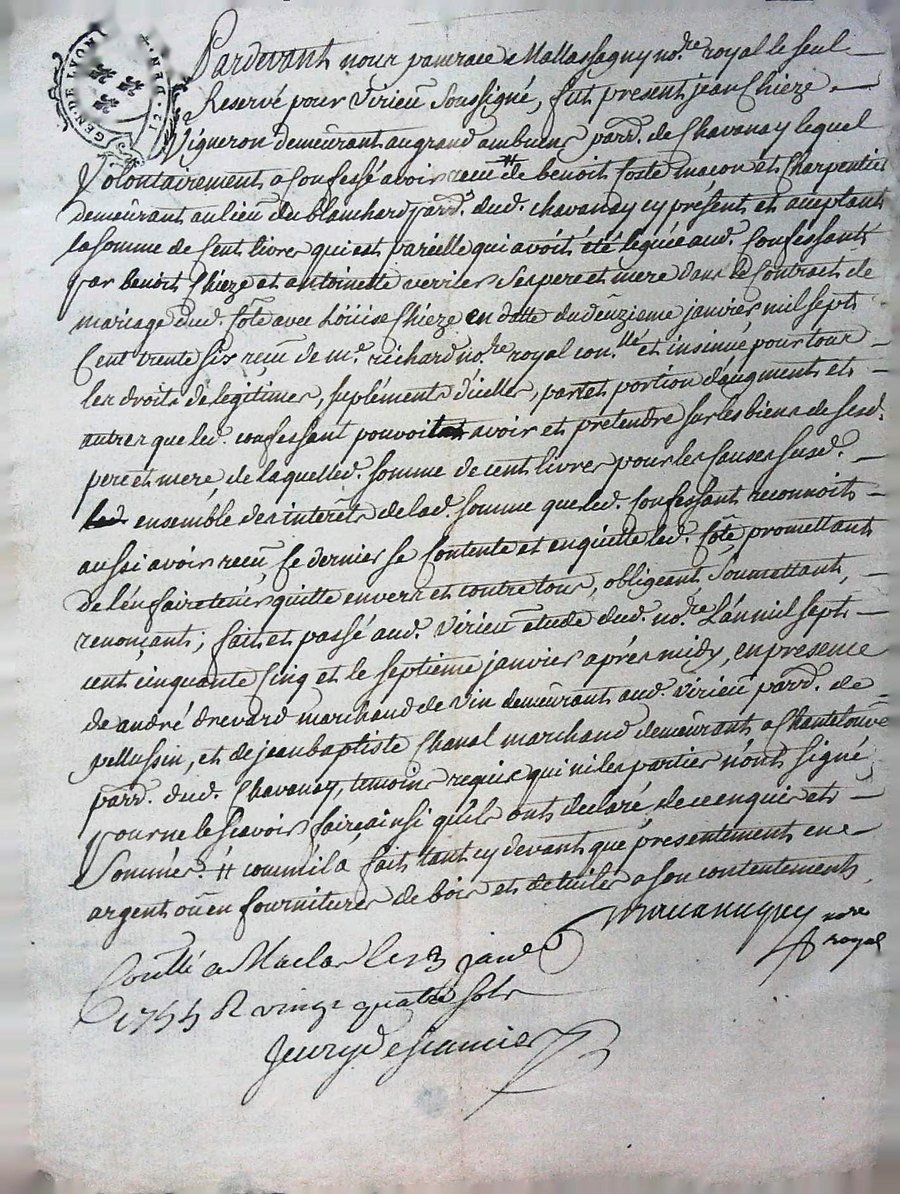 GEN·DE·LYON
DEN·
Pardevant nous pancrace Mallassagny no.re royal le seul
Reservé pour Virieu soussigné, fut présent jean Chieze
Vigneron demeurant au grand ambuens parr. de Chavanay lequel
Volontairement a Confessé avoir receu # de benoit Coste macon et Charpentier
demeurant au lieu du blanchard parr. dud. chavanay cy présent et aceptant
la somme de Cent livre qui est pareille qui avoit été leguée aud. Confessant
par benoit Chieze et antoinette verrier ses pere et mere dans le Contract de
mariage dud. Côte avec Louise Chieze en datte du deuzieme janvier mil sept
Cent trente six reçu de m.e richard no.re royal con.lle et insinué pour tous
les droits de legitimes, suplements d'icelles, part et portion d'augment et
autres que led. confessant pouvoit avoir et prétendre sur les biens de sesd.
pere et mere, de laquelled. somme de cent livres pour les Causes susd.
ensemble des interets de lad. somme que led. Confessant reconnoit
aussi avoir reçu, Ce dernier se Contente et en quitte led. Côte promettant
de l'en faire tenir quitte envers et contre tous, obligeant, Soumettant,
renonçant; fait et passé aud. Virieu étude dud. no.re L'an mil sept
cent cinquante Cinq et le septieme janvier après midy, en presence
de andré drevard marchand de vin demeurant aud. Virieu parr. de
pellussin, et de jean baptiste Chanal marchand demeurant a Chantelouve
parr. dud. Chavanay, temoins requis qui ni les parties n'ont signé
pour ne le scavoir faire ainsi qu'ils ont declaré, de ce enquis et
Sommés. # comm'il a fait tant cy devant que présentement en
argent ou en fournitures de bois et de tuiles a son contentement
no.re
royal
Con.llé a Maclas le 13 janv.
1755 R vingt quatre sols